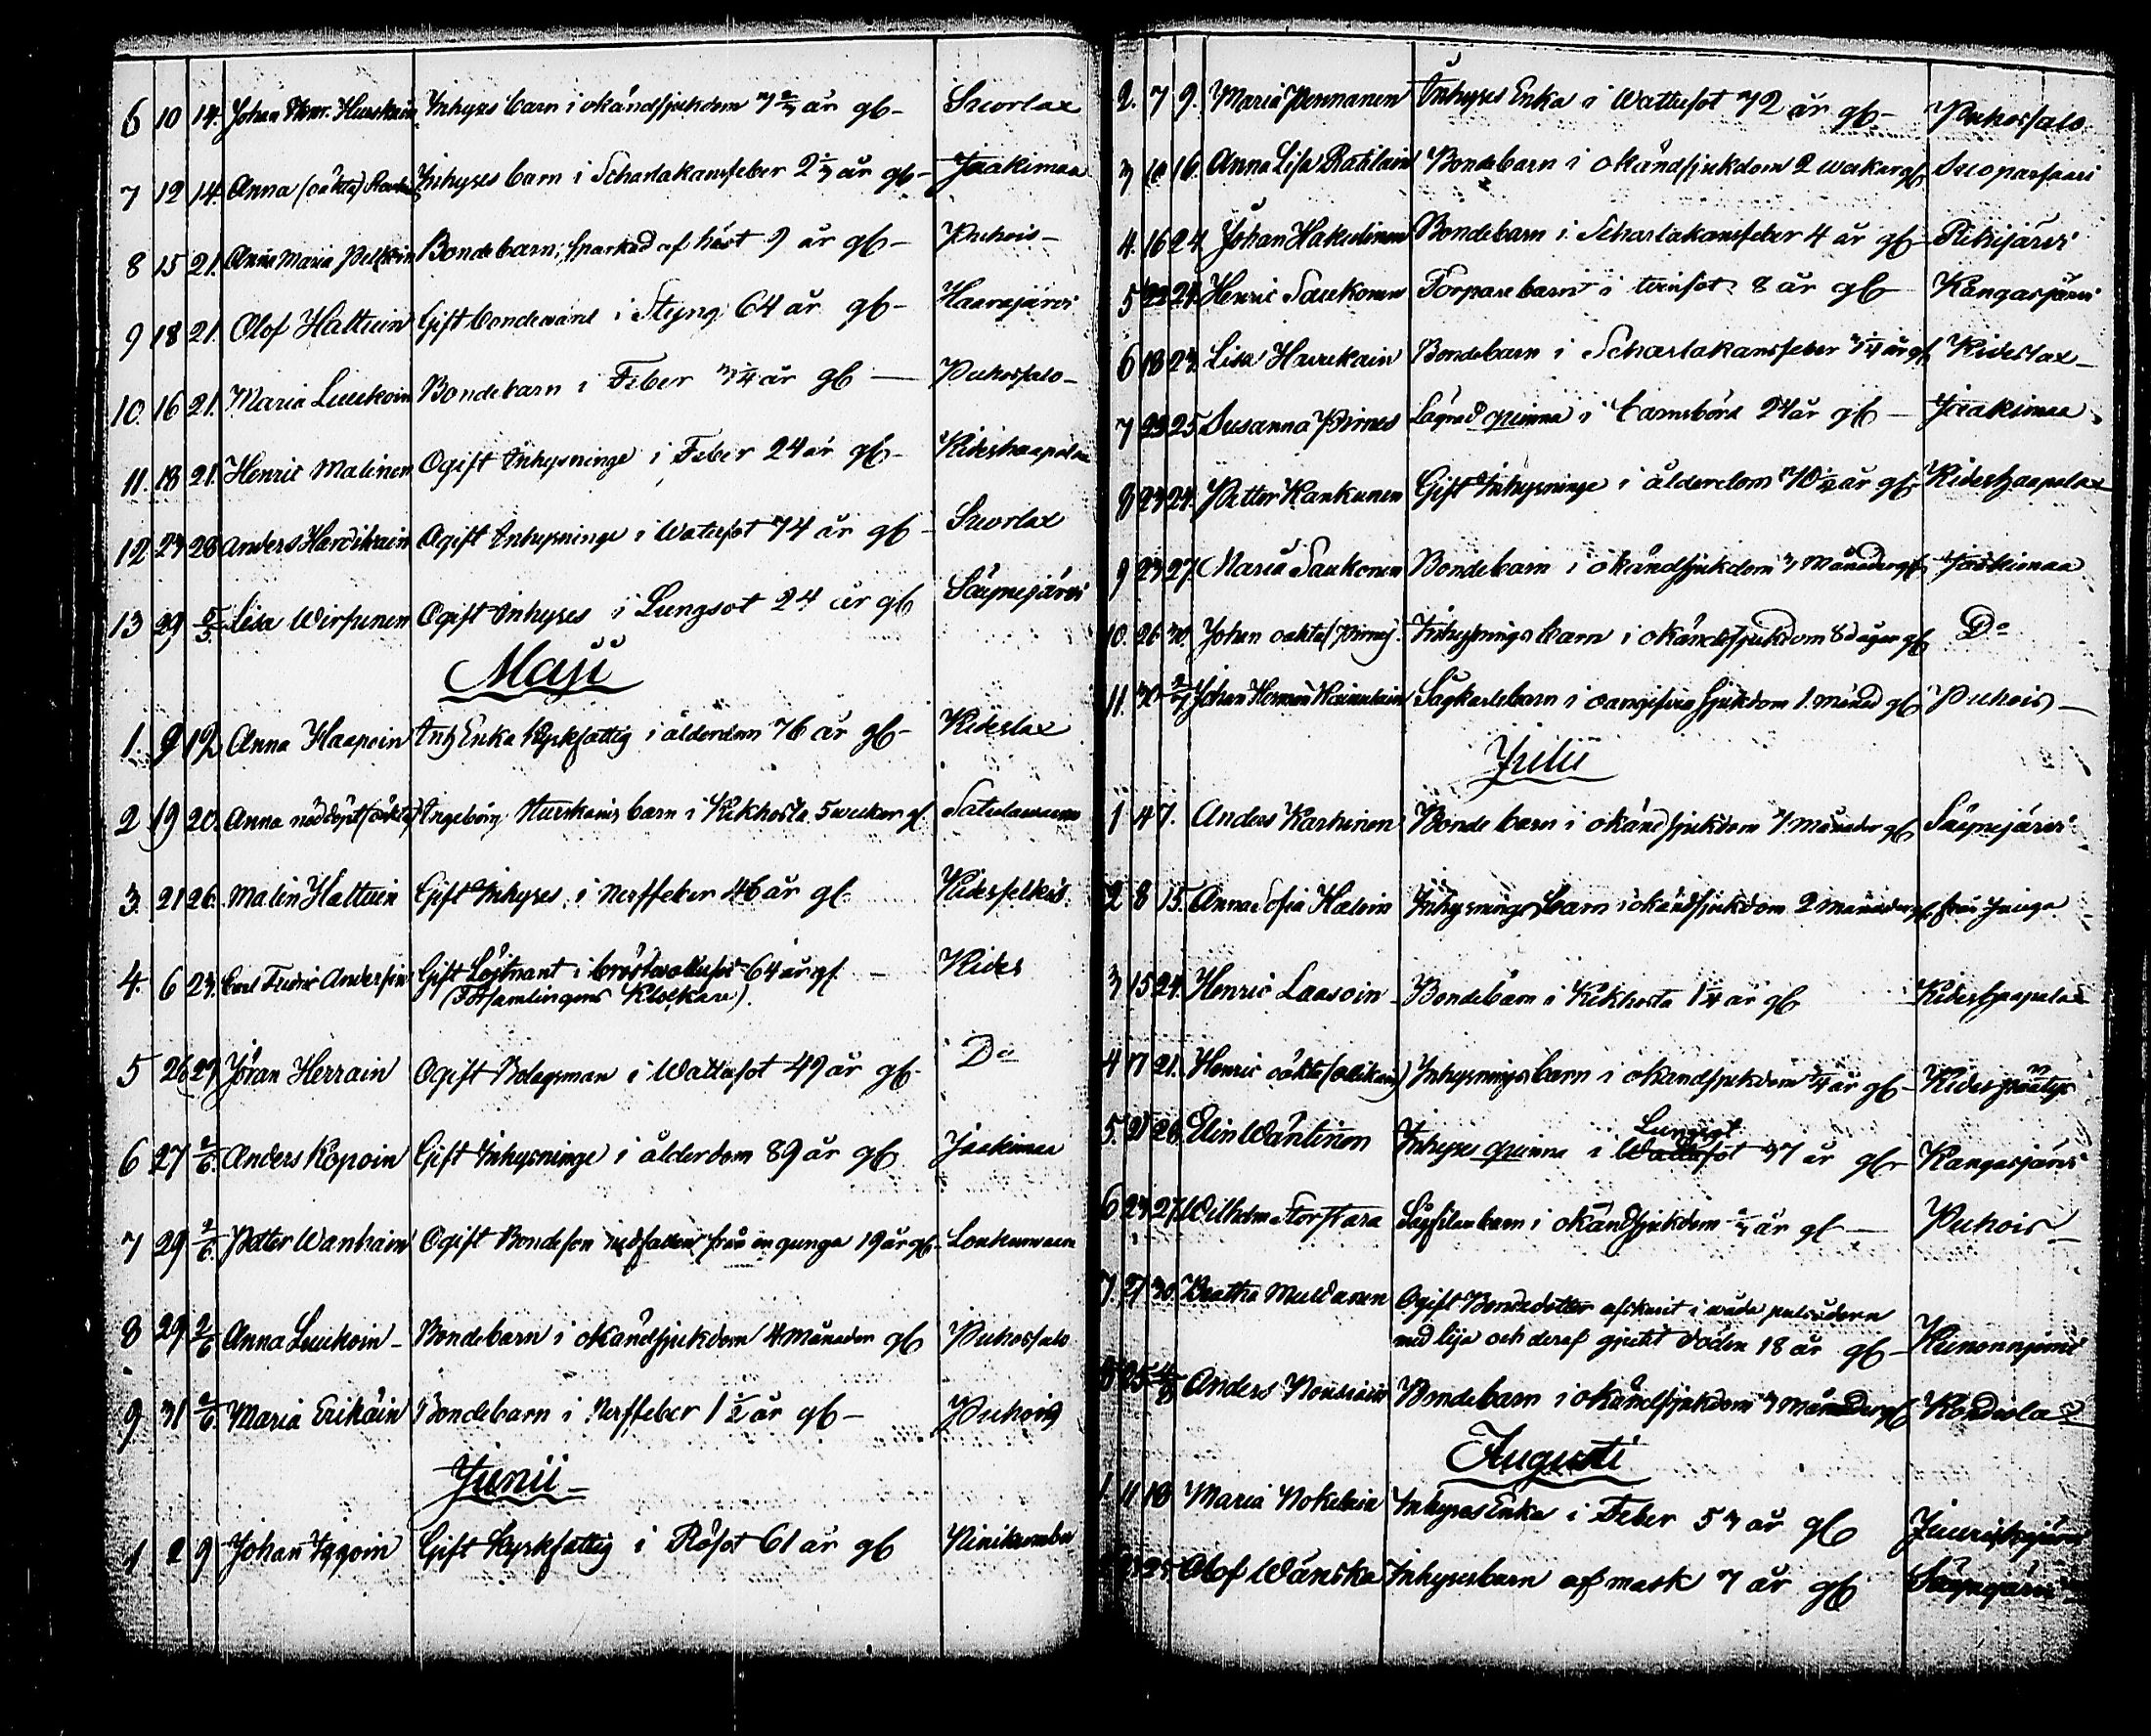 6 10 14. Johan Henr. Hurskain Inhyses barn i okänd sjukdom år gb- Suorlax
7 12 14. Anna (oäkta) Inhyses barn i Scharlakansfeber år gb- Jaakimaa
8 15 21. Anna Maria Pesoin Bondebarn, sparkad af häst 9 år gb- Puhois-
9 18 21. Olof Hattuin Gift bonde i Styng 64 år gb- Haarajärvi
10. 16 21. Maria Luukoin Bondebarn i Feber 3 1/4 år gb- Puhossalo-
11. 18 21. Henric Malinen Ogift Inhysninge i Feber 24 år gb- Kideshaapalax
12 23 28 Anders Ogift Inhysninge i Watusot 74 år gb- Suorlax
13 29 5/5 Lisa Wirsunen Ogift Inhyses i Lungsot 24 år gb Säynejärvi
Maji
1. 9 12 Anna Haapoin Inh Enka kyrkfattig i ålderdom 76 år gb- Kideslax
2 19 20. Anna nöddöpt (oäkta) Ingeborg Hurskains barn i Kikhosta 5 weckor gb. Satulavaara
3. 21 26. Malin Hattuin Gift Inhyses i Nerffeber 46 år gb. Kidesselkes
4. 6 23. Carl Fredric Anderson Gift Löjtnant i bröstwattusot 64 år gb. - Kides
(Församlingens Klockare).
5 26 27 Jöran Herrain Ogift Bolagsman i Wattusot 49 år gb- Do
6 27 2/6. Anders Kopoin Gift Inhysninge i ålderdom 89 år gb Jaakimaa
7 29 2/6. Petter Wanhain Ogift Bondeson nedfallen från en gunga 19 år gb- Loukunvaara
8 29 2/6 Anna Luukoin- Bondebarn i okänd sjukdom 4 Månader gb Puhossalo
9 31 2/6. Maria Erikäin Bondebarn i Nerffeber 1 1/2 år gb- Puhois
Junii-
1 2 9 Johan Gift kyrkfattig i Rösot 61 år gb Niinikumbu
2. 7 9. Maria Pennanen Inhyses Enka i Wattusot 72 år gb- Puhossalo
3 10 16. Anna Lisa Ratilain Bondebarn i okänd sjukdom 2 weckor gb Suoparsaari
4. 16 24. Johan Hakulinen Bondebarn i Scharlakansfeber 4 år gb- Rikijärvi
5 22 24. Henric Saukonen Torpare barn i twinsot 8 år gb Kangasjärvi
6 18 23. Lisa Haurukain Bondebarn i Scharlakansfeber 3 1/4 år gb Kideslax-
7 22 25. Susanna Pirnes Lägrad qvinna i barnsbörd 24 år gb- Jaakimaa
8 23 24. Petter Kankunen Gift Inhysninge i ålderdom 70 1/2 år gb- Kideshaapalax
9 23 27. Maria Saukonen Bondebarn i okänd sjukdom 3 Månader gb Jaakimaa
10. 26 30. Johan oäkta (Pirnes) Inhysnings barn i okänd sjukdom 8 dagar gb Do
11. 30 2/7 Johan Herman Sågkarlsbarn i oangifven sjukdom 1. månad gb Puhois-
Julii
1 4 7. Anders Karhinen Bonde barn i okänd sjukdom 7. månader gb Säynejärvi
2 8 15. Anna Sofia Haloin Inhysninge barn i okänd sjukdom 2 månader gb från Juuga
3 15 24. Henric Laasoin Bondebarn i Kikhosta 1 1/4 år gb Kideshaapalax
4 17 21. Henric oäkta Inhysnings barn i okänd sjukdom 3/4 år gb-
5. 21 28. Elin Wäntinen Inhyses qvinna i Lungsot Wattusot 37 år gb- Kangasjärvi
6 23 27. Wilhelm Storskara Sågfilar barn i okänd sjukdom år gb- Puhois-
7. 27 30. Beatha Muldanen Ogift Bondedotter afskurit i wåda pulsådern
med lija och deraf gjutit döden 18 år gb-
8 25 Anders Nousiain Bondebarn i okänd sjukdom 3 Månader gb Kondeslax
Augusti
1. 11 18 Maria Nokelain Inhyses Enka i Feber 53 år gb Juurikkajärvi
Olof Wänska Inhysesbarn af mask 7 år gb Säynejärvi